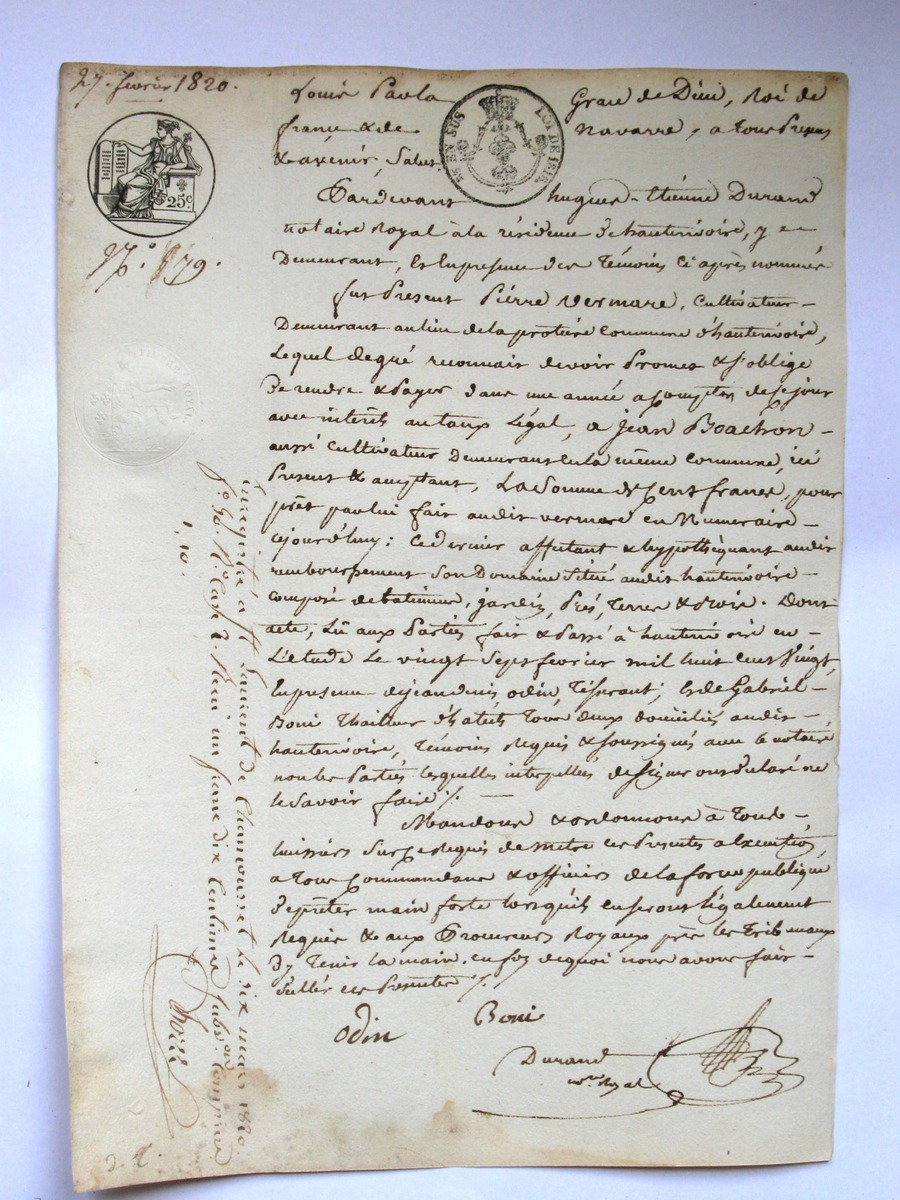 27. fevrier 1820.
Louis Parla Grace de Dieu, Roi de
france & de navarre, a tous Presens
& avenir, Salut.
EN SUS
LOI DE 1816
25c
N.° 79.
Pardevant hugues-Etienne Durand
notaire Royal à la résidence d'hauterivoire, y
Demeurant, & En presence des Témoins ci après nommés
fut Present Pierre Vermare, Cultivateur
Demeurant au lieu de la commune d'hauterivoire,
Lequel de gré reconnait devoir Promet & s'oblige
De rendre & Payer dans une année a compter de ce jour
avec interêts au taux Légal, a Jean Boachon
aussi Cultivateur Demeurant en la même commune, ici
Present & aceptant, La Somme de Cent francs, pour
prêt par lui fait audit vermare en Numeraire
cejourd'huy; ce dernier affectant & hypothéquant audit
remboursement Son Domaine Situé audit hauterivoire
composé de batimens, jardin, Prés, Terres & . Dont
acte, Lû aux Parties fait & Passé à hauterivoire en
L'etude Le vingt Sept fevrier mil huit cens Vingt,
En presence de jean denis odin, Tisserant; & de Gabriel
Boni Tailleur d'habits Tous deux domiciliés audit
hauterivoire, Témoins Requis & Soussignés avec le notaire
non les Parties lesquelles interpellées de signer ont déclaré ne
le Savoir faire ./.
Mandons & ordonnons à Tous
huissiers Sur ce Requis de mettre ces Presentes a Execution,
a tous Commandans & officiers de la force publique
De prêter main forte lorsqu'ils en seront légalement
Requis & aux Procureurs Royaux près les Tribunaux
D'y Tenir la main. en foi de quoi nous avons fait
Sceller ces Presentes ./.
odin
Boni
Durand
Royal
Enregistré à St Laurent de Chamousset le six mars 1820.
f.° 90 R.° Case 2. Reçu un franc dix centimes subv.on comprise